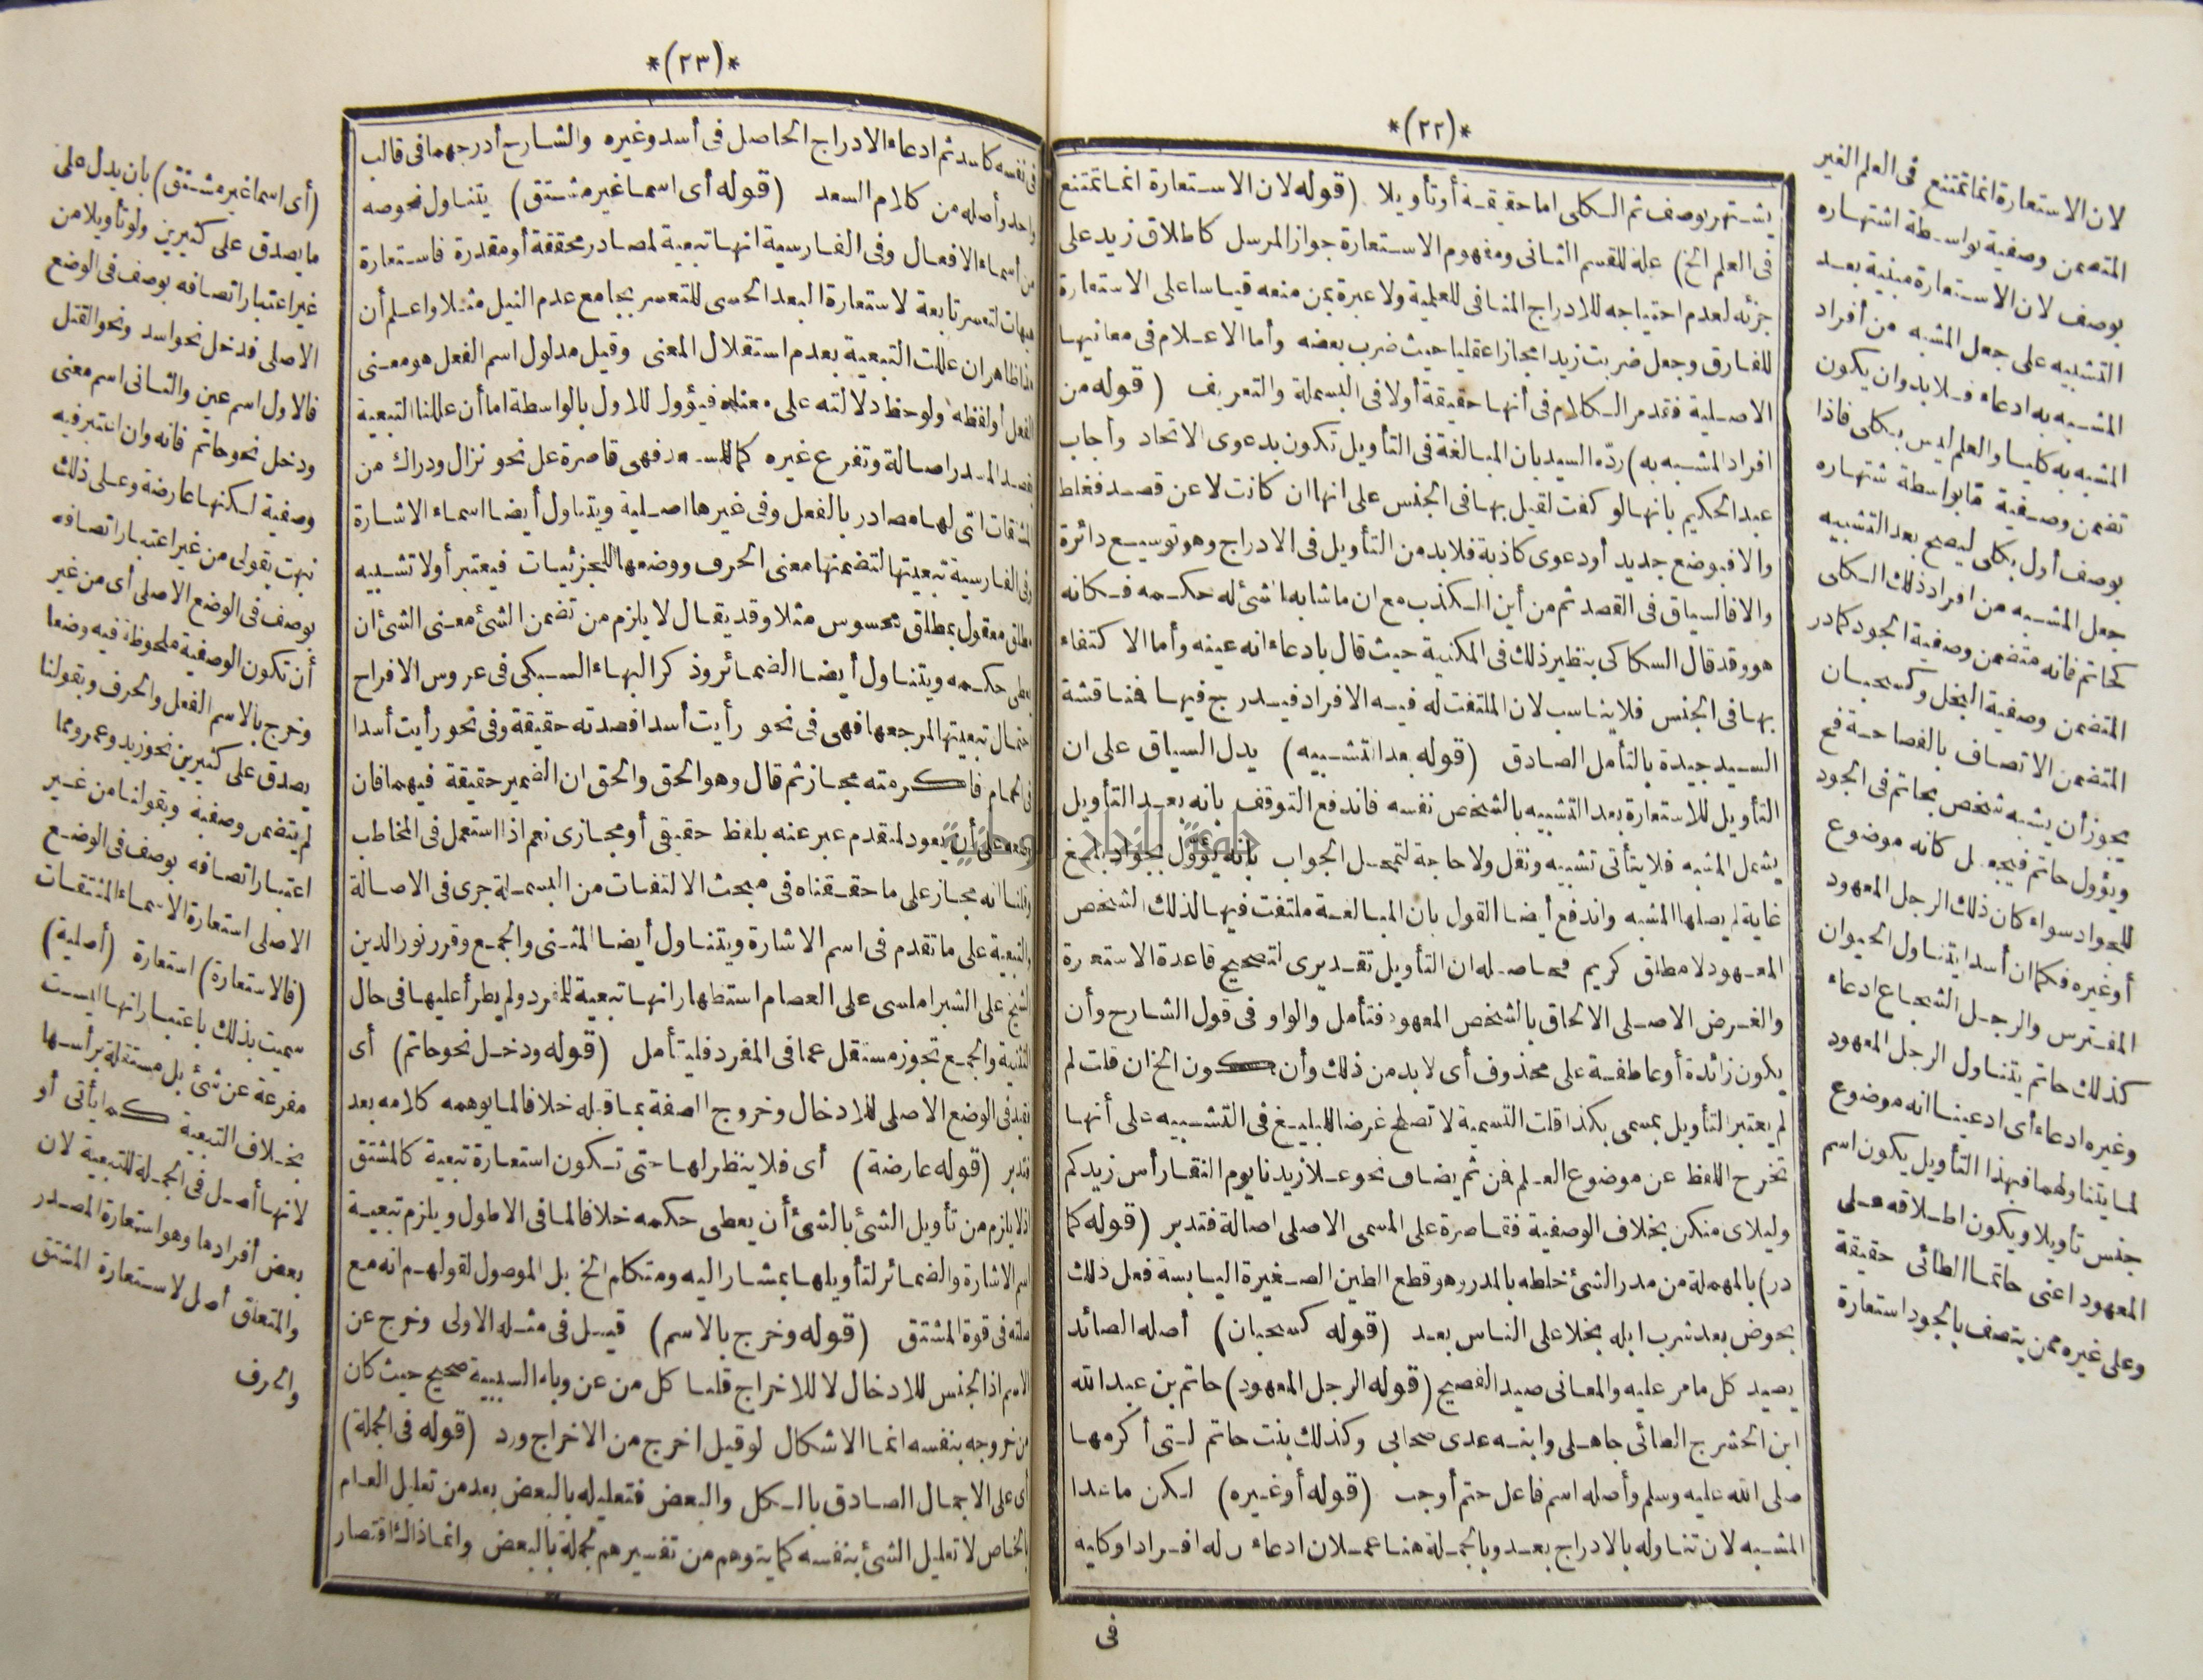 *(٢٢)*
يشتهر بوصف ثم الكلى اما حقيقة أو تأويلا (قوله لان الاستعارة انما تمتنع
فى العلم الخ) علة للقسم الثانى ومفهوم الاستعارة جواز المرسل كاطلاق زيد على
جزئه لعدم احتياجه للادراج المنافى للعلمية ولا عبرة بمن منعه قياسا على الاستعارة
للفارق وجعل ضربت زيدا مجازا عقليا حيث ضرب بعضه وأما الاعلام فى معانيها
الاصلية فقد مر الكلام فى أنها حقيقة أولا فى البسملة والتعريف (قوله من
افراد المشبه به) ردّه السيد بان المبالغة فى التأويل تكون بدعوى الاتحاد وأجاب
عبد الحكيم بانها لو كفت لقيل بها فى الجنس على انها ان كانت لا عن قصد فغلط
والا فبوضع جديد أو دعوى كاذبة فلا بد من التأويل فى الادراج وهو توسيع دائرة
والا فالسياق فى القصد ثم من أين الكذب مع ان ما شابه الشئ له حكمه فكانه
هو وقد قال السكاكى بنظير ذلك فى المكنية حيث قال بادعاء انه عينه وأما الاكتفاء
بها فى الجنس فلا يناسب لان الملتفت له فيه الافراد فيدرج فيها فمناقشة
السيد جيدة بالتأمل الصادق (قوله بعد التشبيه) يدل السياق على ان
التأويل للاستعارة بعد التشبيه بالشخص نفسه فاندفع التوقف بانه بعد التأويل
يشمل المشبه فلا يتأتى تشبيه ونقل ولا حاجة لتمحل الجواب بانه يؤول بجواد بلغ
غاية لم يصلها المشبه واندفع أيضا القول بان المبالغة ملتفت فيها لذلك الشخص
المعهود لا مطلق كريم فحاصله ان التأويل تقديرى لتصحيح قاعدة الاستعارة
والغرض الاصلى الالحاق بالشخص المعهود فتأمل والواو فى قول الشارح وأن
يكون زائدة أو عاطفة على محذوف أى لا بد من ذلك وأن يكون الخ ان قلت لم
لم يعتبر التأويل بمسمى بكذا قلت التسمية لا تصلح غرضا للبليغ فى التشبيه على أنها
تخرج اللفظ عن موضوع العلم فمن ثم يضاف نحو علا زيدنا يوم النقا رأس زيدكم
وليلاى منكن بخلاف الوصفية فقاصرة على المسمى الاصلى اصالة فتدبر (قوله كما
در) بالمهملة من مدر الشئ خلطه بالمدر وهو قطع الطين الصغيرة اليابسة فعل ذلك
بحوض بعد شرب ابله بخلا على الناس بعد (قوله كسحبان) أصله الصائد
يصيد كل ما مر عليه والمعانى صيد الفصيح (قوله الرجل المعهود) حاتم بن عبد الله
ابن الحشرج الطائى جاهلى وابنه عدى صحابى وكذلك بنت حاتم التى أكرمها
صلى الله عليه وسلم وأصله اسم فاعل حتم أوجب (قوله أو غيره) لكن ما عدا
المشبه لان تناوله بالادراج بعد وبالجملة هنا عملان ادعاء
فى
لان الاستعارة انما تمتنع فى العلم الغير
المتضمن وصفية بواسطة اشتهاره
بوصف لان الاستعارة مبنية بعد
التشبيه على جعل المشبه من أفراد
المشبه به ادعاء فلا بد وان يكون
المشبه به كليا والعلم ليس بكلى فاذا
تضمن وصفية ما بواسطة شتهاره
بوصف أول بكلى ليصح بعد التشبيه
جعل المشبه من افراد ذلك الكلى
كحاتم فانه متضمن وصفية الجود كمادر
المتضمن وصفية البخل وكسحبان
المتضمن الاتصاف بالفصاحة فح
يجوز أن يشبه شخص بحاتم فى الجود
ويؤول حاتم فيجعل كانه موضوع
للجواد سواء كان ذلك الرجل المعهود
أو غيره فكما ان أسدا يتناول الحيوان
المفترس والرجل الشجاع ادعاء
كذلك حاتم يتناول الرجل المعهود
وغيره ادعاء أى ادعينا انه موضوع
لما يتناولهما فبهذا التأويل يكون اسم
جنس تأويلا ويكون اطلاقه على
المعهود اعنى حاتما الطائى حقيقة
وعلى غيره ممن يتصف بالجود استعارة
*(٢٣)*
فى نفسه كاسد ثم ادعاء الادراج الحاصل فى أسد وغيره والشارح أدرجهما فى قالب
واحد وأصله من كلام السعد (قوله أى اسما غير مشتق) يتناول نحو صه
من أسماء الافعال وفى الفارسية انها تبعية لمصادر محققة أو مقدرة فاستعارة
هيهات لتعسر تابعة لاستعارة البعد الحسى للتعسر بجامع عدم النيل مثلا واعلم أن
هذا ظاهر ان عللت التبعية بعدم استقلال المعنى وقيل مدلول اسم الفعل هو معنى
الفعل أو لفظه ولو حظ دلالته على معناه فيؤول للاول بالواسطة اما أن عللنا التبعية
بقصد المصدر اصالة وتفرع غيره كما للسعد فهى قاصرة على نحو نزال ودراك من
المشتقات التى لها مصادر بالفعل وفى غيرها اصلية ويتناول أيضا اسماء الاشارة
وفى الفارسية تبعيتها لتضمنها معنى الحرف ووضعها للجزئيات فيعتبر أولا تشبيه
مطلق معقول بمطلق محسوس مثلا وقد يقال لا يلزم من تضمن الشئ معنى الشئ ان
يعطى حكمه ويتناول أيضا الضمائر وذكر البهاء السبكى فى عروس الافراح
احتمال تبعيتها لمرجعها فهى فى نحو رأيت أسدا فصدته حقيقة وفى نحو رأيت أسدا
فى الحمام فاكرمته مجاز ثم قال وهو الحق والحق ان الضمير حقيقة فيهما فان
وضعه على أن يعود لمتقدم عبر عنه بلفظ حقيقى أو مجازى نعم اذا استعمل فى المخاطب
وقلنا انه مجاز على ما حققناه فى مبحث الالتفات من البسملة جرى فى الاصالة
والتبعية على ما تقدم فى اسم الاشارة ويتناول أيضا المثنى والجمع وقرر نور الدين
الشيخ على الشبراملسى على العصام استظهار انها تبعية للمفرد ولم يطرأ عليها فى حال
التثنية والجمع تجوز مستقل عما فى المفرد فليتأمل (قوله ودخل نحو حاتم) أى
بقيد فى الوضع الاصلى للادخال وخروج الصفة بما قبله خلافا لما يوهمه كلامه بعد
فتدبر (قوله عارضة) أى فلا ينظر لها حتى تكون استعارة تبعية كالمشتق
اذ لا يلزم من تأويل الشئ بالشئ أن يعطى حكمه خلافا لما فى الاطول ويلزم تبعية
اسم الاشارة والضمائر لتأويلها بمشار اليه ومتكلم الخ بل الموصول لقولهم انه مع
صلته فى قوة المشتق (قوله وخرج بالاسم) قيل فى مثله الاولى وخرج عن
الاسم اذ الجنس للادخال لا للاخراج قلنا كل من عن وباء السببية صحيح حيث كان
من خروجه بنفسه انما الاشكال لو قيل اخرج من الاخراج ورد (قوله فى الجملة)
أى على الاجمال الصادق بالكل والبعض فتعليله بالبعض بعد من تعليل العام
بالخاص لا تعليل الشئ بنفسه كما يتوهم من تفسيرهم جملة بالبعض وانما ذاك اقتصار
(أى اسما غير مشتق) بان يدل على
ما يصدق على كثيرين ولو تأويلا من
غير اعتبار اتصافه بوصف فى الوضع
الاصلى فدخل نحو اسد ونحو القتل
فالاول اسم عين والثانى اسم معنى
ودخل نحو حاتم فانه وان اعتبر فيه
وصفية لكنها عارضة وعلى ذلك
نبهت بقولى من غير اعتبار اتصافه
بوصف فى الوضع الاصلى أى من غير
أن تكون الوصفية ملحوظة فيه وضعا
وخرج بالاسم الفعل والحرف وبقولنا
يصدق على كثيرين نحو زيد وعمرو مما
لم يتضمن وصفية وبقولنا من غير
اعتبار اتصافه بوصف فى الوضع
الاصلى استعارة الاسماء المشتقات
(فالاستعارة) استعارة (أصلية)
سميت بذلك باعتبار انها ليست
مفرعة عن شئ بل مستقلة برأسها
بخلاف التبعية كما يأتى أو
لانها أصل فى الجملة للتبعية لان
بعض أفرادها وهو استعارة المصدر
والمتعلق أصل لاستعارة المشتق
والحرف